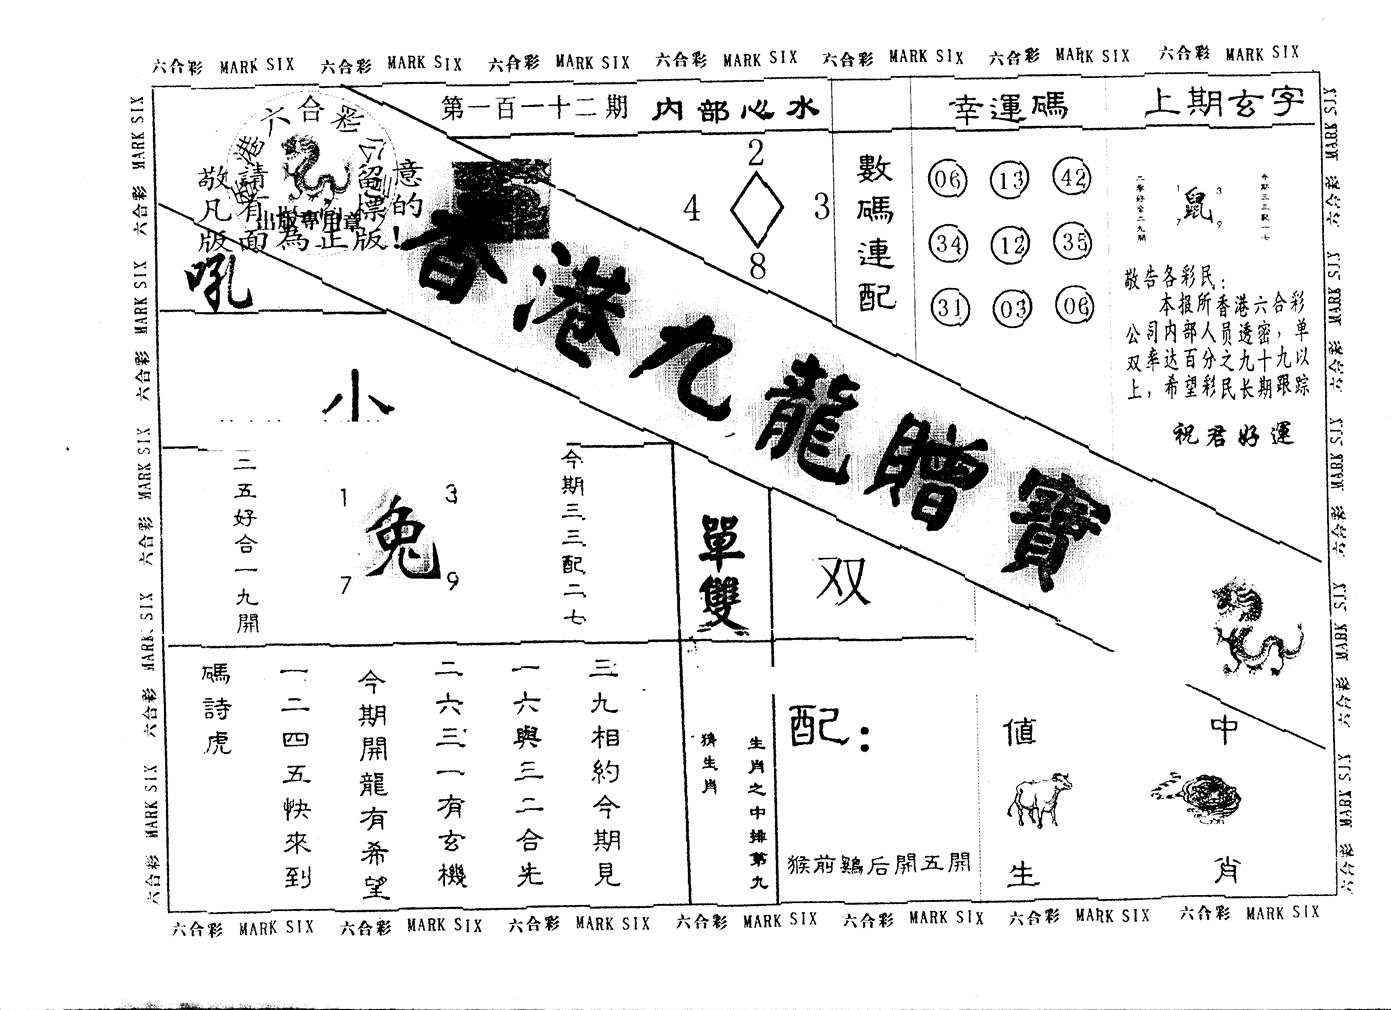 六合彩 MARK SIX 六合彩 MARK SIX 六合彩 MARK SIX 六合彩 MARK SIX 六合彩 MARK SIX 六合彩 MARK SIX 六合彩 MARK SIX
六合彩 MARK SIX 六合彩 MARK SIX 六合彩 MARK SIX 六合彩 MARK SIX 六合彩 MARK SIX
第一百一十二期 内部心水
幸運碼
上期玄字
港六合彩公
敬請留意
凡有標的
版面為正版!
出版專用章
吼
香港九龍贈寶
2
4 3
8
數碼連配
06 13 42
34 12 35
31 03 06
鼠
1 3
7 9
敬告各彩民：
本报所香港六合彩
公司内部人员透密，单
双率达百分之九十九以
上，希望彩民长期跟踪
祝君好運
小
二五好合一九開
1 3
兔
7 9
今期三三配二七
單雙
双
碼詩虎
一二四五快來到
今期開龍有希望
二六三一有玄機
一六與三二合先
三九相約今期見
猜生肖
生肖之中排第九
配：
猴前鷄后開五開
值 中
生 肖
六合彩 MARK SIX 六合彩 MARK SIX 六合彩 MARK SIX 六合彩 MARK SIX 六合彩 MARK SIX
六合彩 MARK SIX 六合彩 MARK SIX 六合彩 MARK SIX 六合彩 MARK SIX 六合彩 MARK SIX 六合彩 MARK SIX 六合彩 MARK SIX